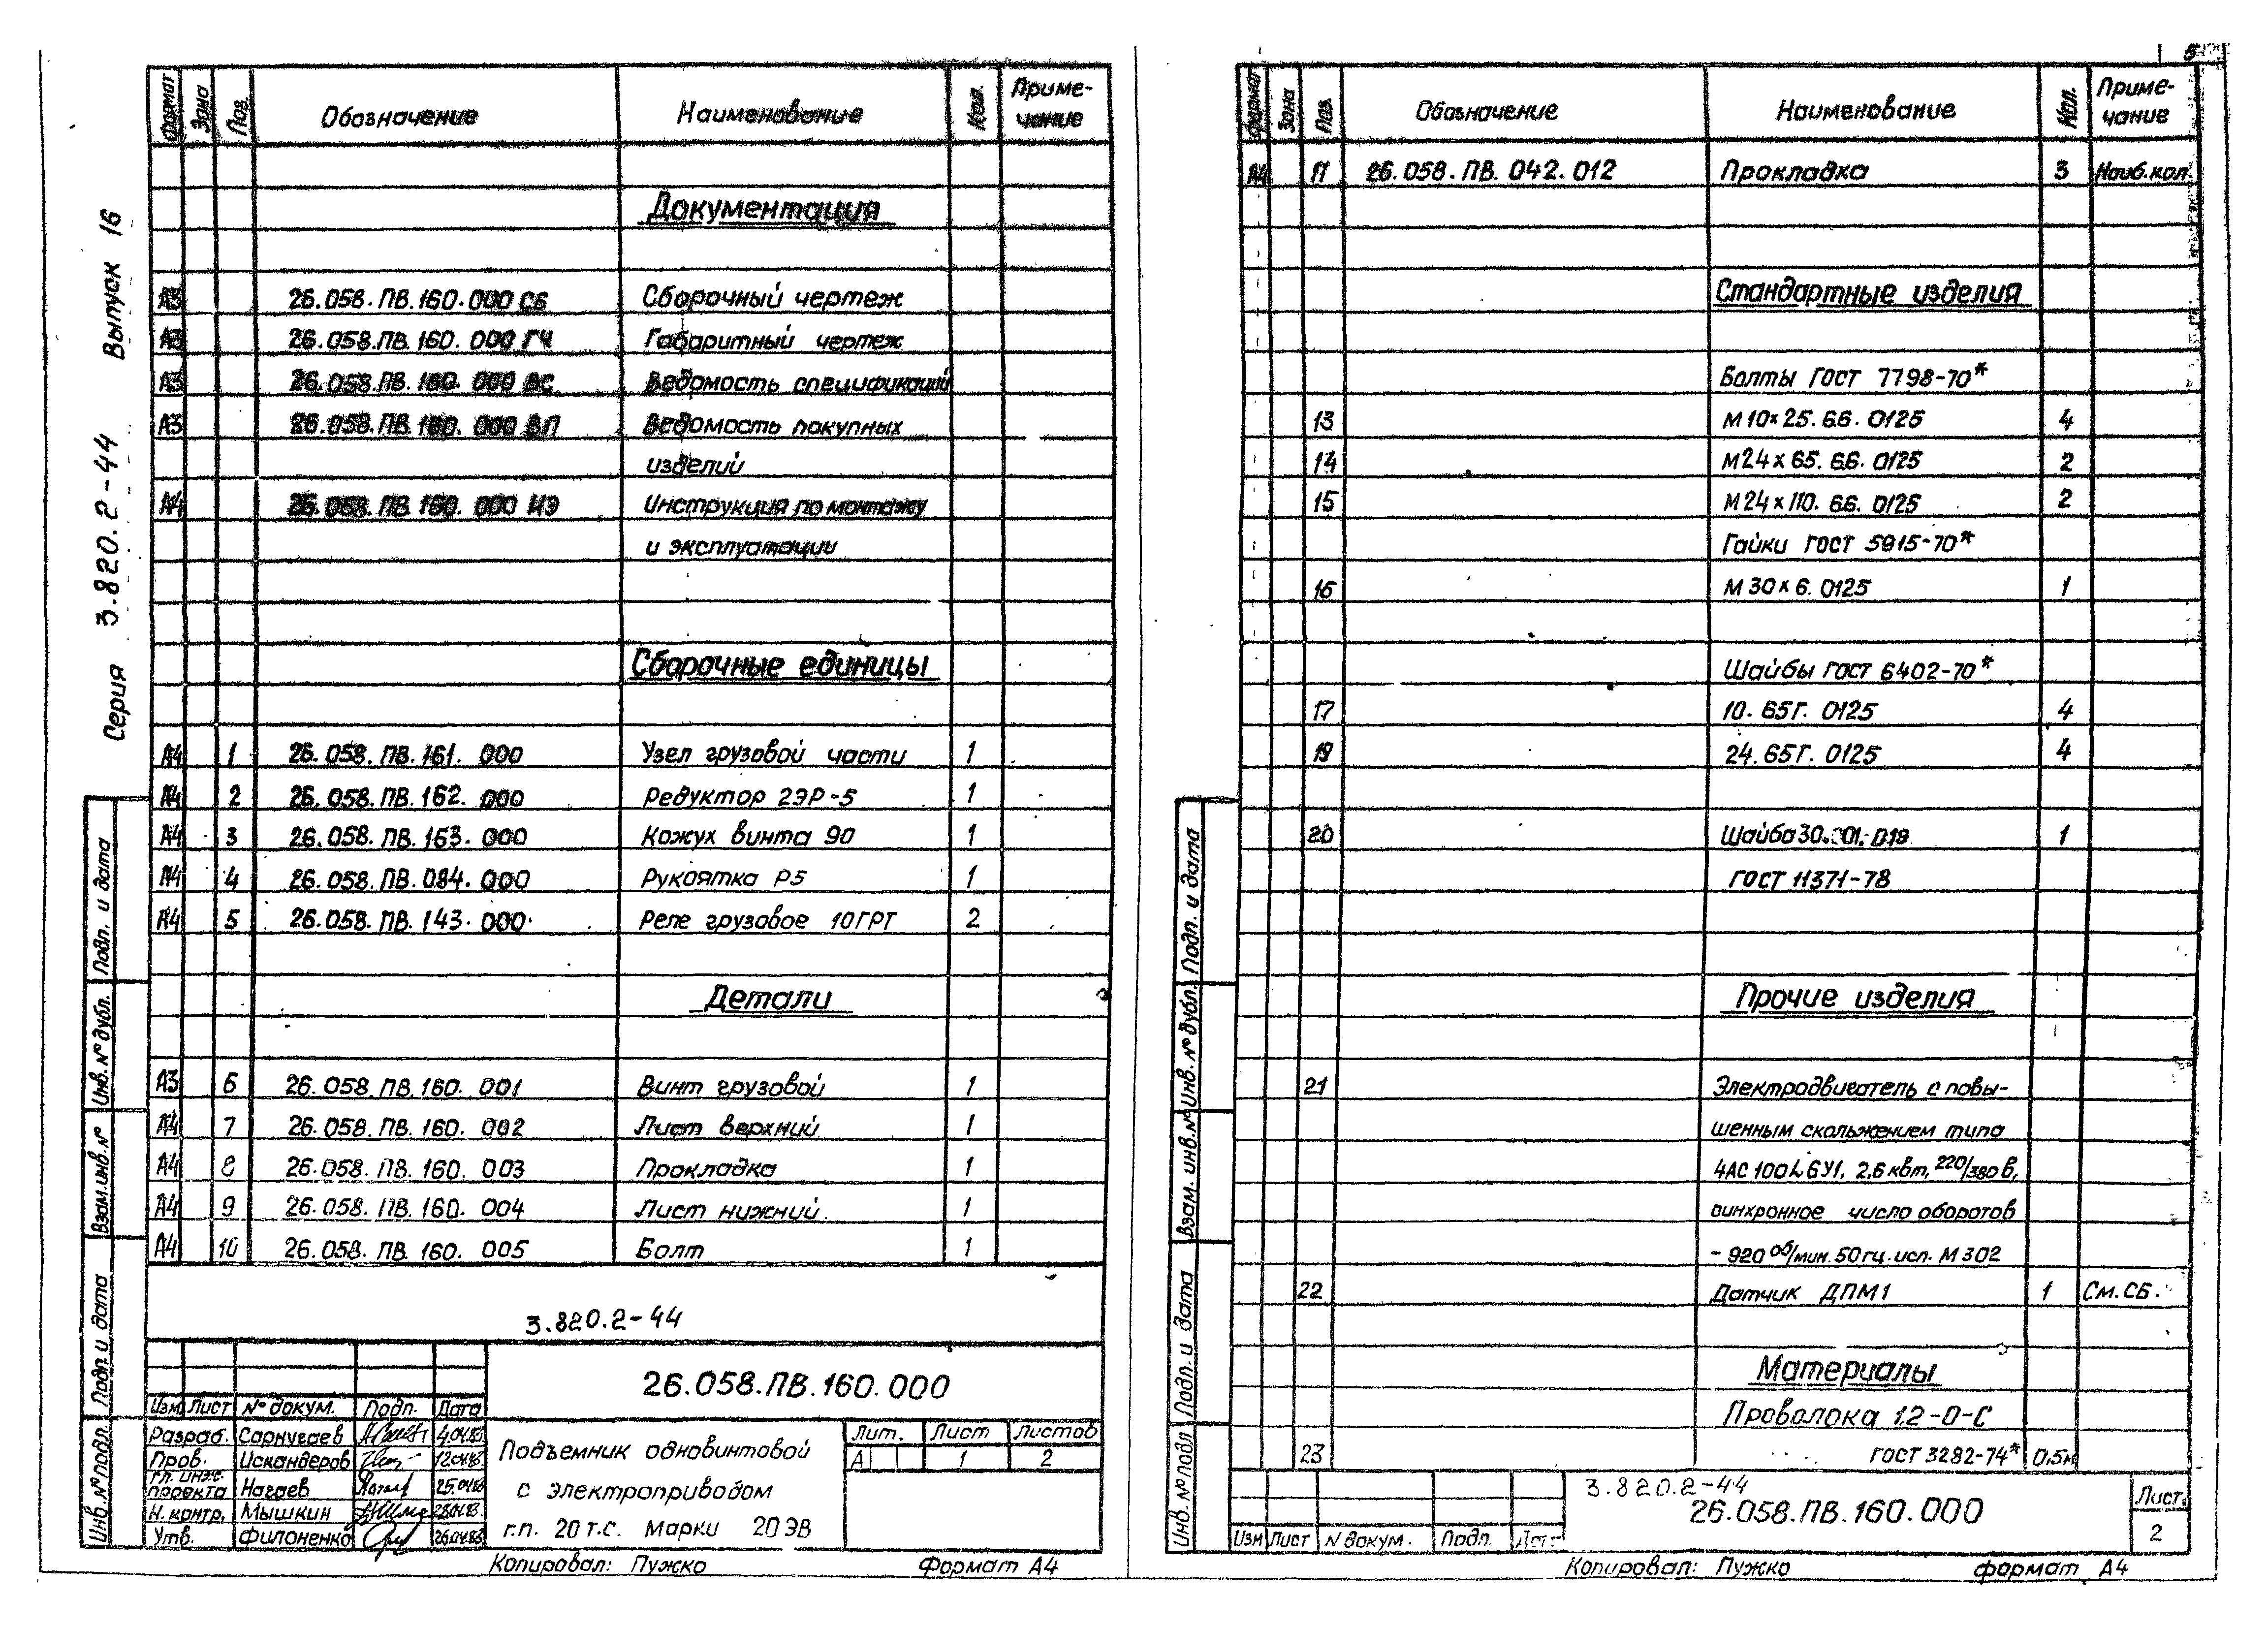 Серия 3.820.2-44 Выпуск 16
Формат Зона Поз. Обозначение Наименование Кол. Приме-
чание
Документация
А3 26.058.ПВ.160.000 СБ Сборочный чертеж
А3 26.058.ПВ.160.000 ГЧ Габаритный чертеж
А3 26.058.ПВ.160.000 ВС Ведомость спецификаций
А3 26.058.ПВ.160.000 ВП Ведомость покупных
изделий
А4 26.058.ПВ.160.000 ИЭ Инструкция по монтажу
и эксплуатации
Сборочные единицы
А4 1 26.058.ПВ.161.000 Узел грузовой части 1
А4 2 26.058.ПВ.162.000 Редуктор 2ЭР-5 1
А4 3 26.058.ПВ.163.000 Кожух винта 90 1
А4 4 26.058.ПВ.084.000 Рукоятка Р5 1
А4 5 26.058.ПВ.143.000 Реле грузовое 10ГРТ 2
Детали
А3 6 26.058.ПВ.160.001 Винт грузовой 1
А4 7 26.058.ПВ.160.002 Лист верхний 1
А4 8 26.058.ПВ.160.003 Прокладка 1
А4 9 26.058.ПВ.160.004 Лист нижний 1
А4 10 26.058.ПВ.160.005 Болт 1
3.820.2-44
26.058.ПВ.160.000
Изм Лист № докум. Подп. Дата
Разраб. Сарнугаев 4.04.83
Пров. Искандеров 12.04.83
Гл. инж.
проекта Нагаев 25.04.83
Н. контр. Мышкин 28.04.83
Утв. Филоненко 26.04.83
Подъемник одновинтовой
с электроприводом
г.п. 20 т.с. Марки 20ЭВ
Лит. Лист Листов
А 1 2
Копировал: Пужко Формат А4
Инв. № подл. Подп. и дата Взам. инв. № Инв. № дубл. Подп. и дата
5
Формат Зона Поз. Обозначение Наименование Кол. Приме-
чание
А4 11 26.058.ПВ.042.012 Прокладка 3 Наиб. кол.
Стандартные изделия
Болты ГОСТ 7798-70*
13 М10х25.66.0125 4
14 М24х65.66.0125 2
15 М24х110.66.0125 2
Гайки ГОСТ 5915-70*
16 М30х6.0125 1
Шайбы ГОСТ 6402-70*
17 10.65Г.0125 4
19 24.65Г.0125 4
20 Шайба 30.01.019 1
ГОСТ 11371-78
Прочие изделия
21 Электродвигатель с повы-
шенным скольжением типа
4АС100L6У1, 2,6 квт, 220/380 в,
синхронное число оборотов
- 920 об/мин. 50гц. исп. М302
22 Датчик ДПМ1 1 См. СБ.
Материалы
Проволока 1.2-О-С
23 ГОСТ 3282-74* 0.5м
3.820.2-44
26.058.ПВ.160.000
Изм Лист N докум. Подп. Дата
Лист.
2
Копировал: Пужко формат А4
Инв. № подл Подп. и дата Взам. инв. № Инв. № дубл. Подп. и дата